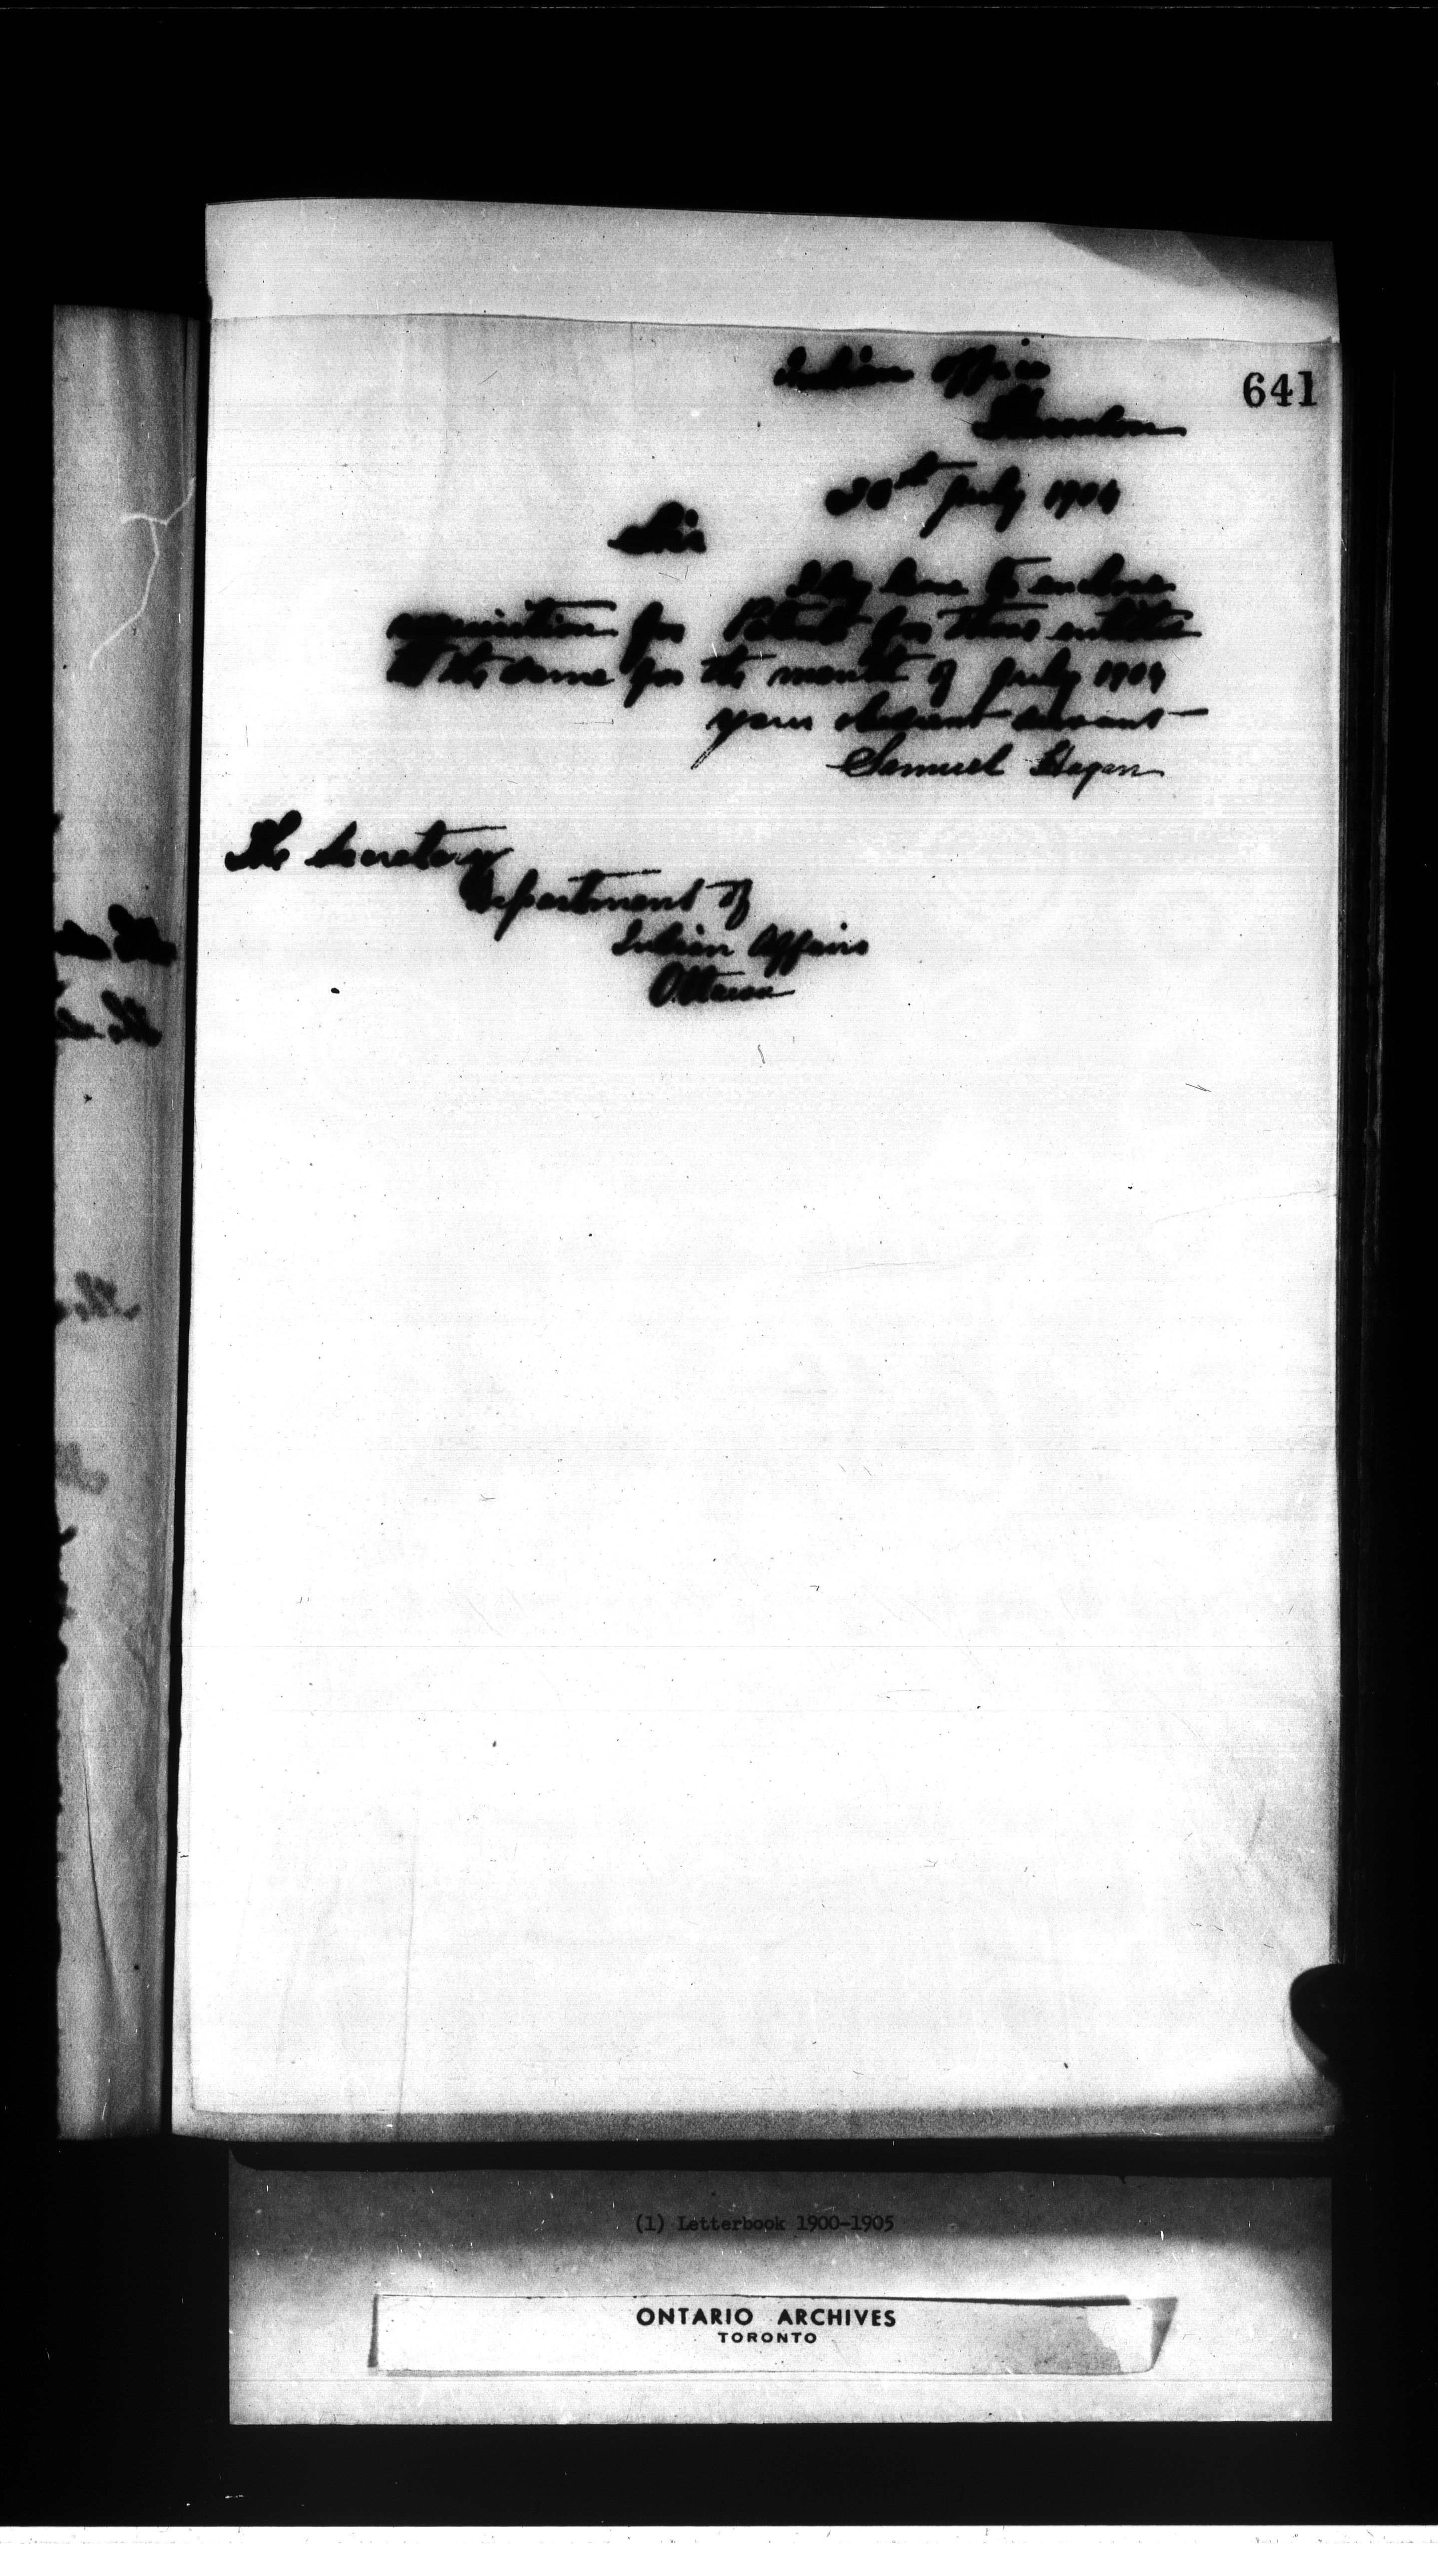 641
Indian Office
Thessalon
30th July 1904
Sir
I beg leave to enclose
requisition for Patents for those entitled
to the same for the month of July 1904
your obedient servant
Samuel Hagan
The Secretary
Department of
Indian Affairs
Ottawa
(1) Letterbook 1900-1905
ONTARIO ARCHIVES
TORONTO